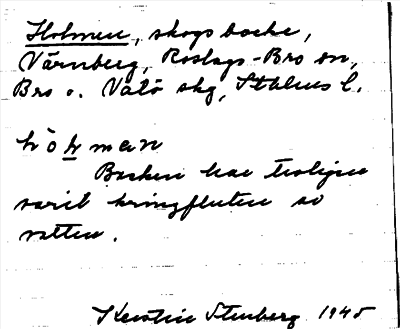 Holmen, skogsbacke,
Värnberg, Roslags-Bro sn,
Bro o. Vätö skg, Sthlms l.
hòḷmen
Backen har troligen
varit kringfluten av
vatten.
Kerstin Stenberg 1945